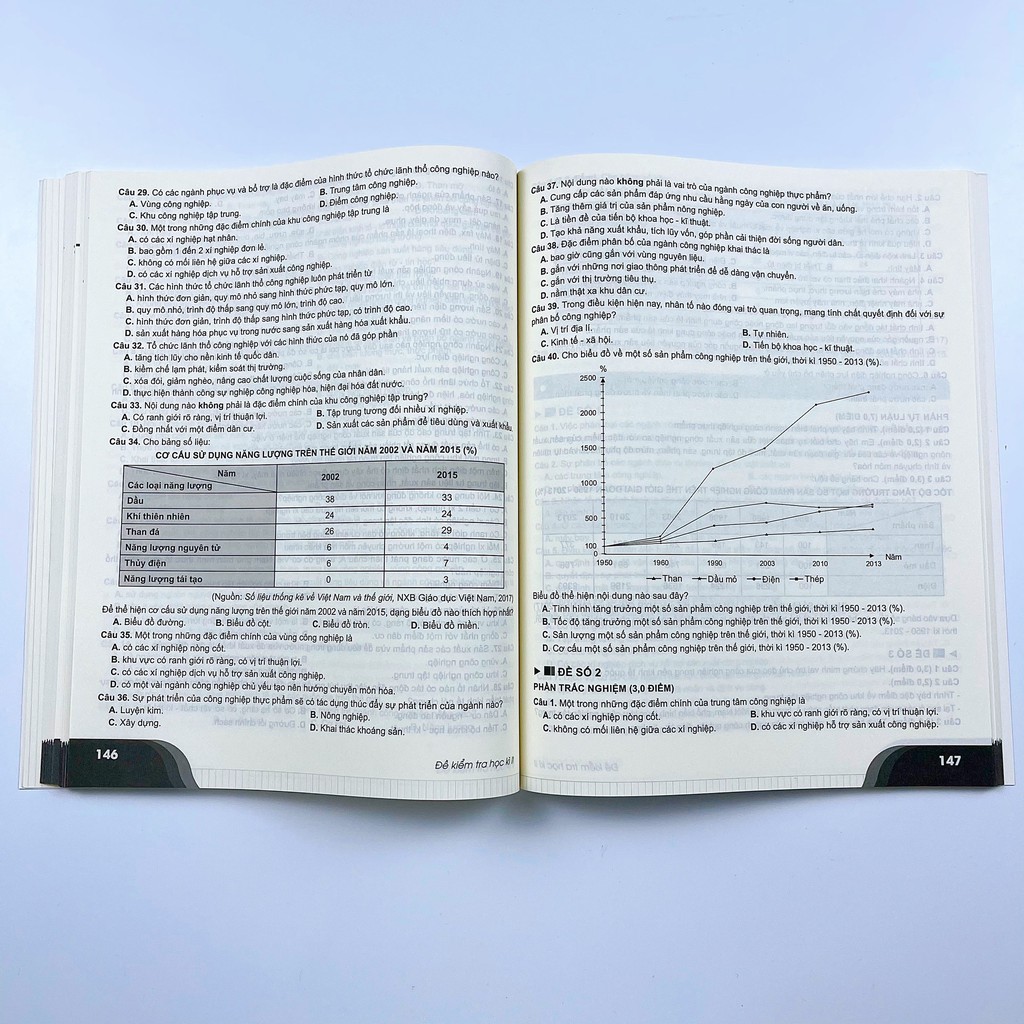 Câu 29. Có các ngành phục vụ và bổ trợ là đặc điểm của hình thức tổ chức lãnh thổ công nghiệp nào?
A. Vùng công nghiệp. B. Trung tâm công nghiệp.
C. Khu công nghiệp tập trung. D. Điểm công nghiệp.
Câu 30. Một trong những đặc điểm chính của khu công nghiệp tập trung là
A. có các xí nghiệp hạt nhân.
B. bao gồm 1 đến 2 xí nghiệp đơn lẻ.
C. không có mối liên hệ giữa các xí nghiệp.
D. có các xí nghiệp dịch vụ hỗ trợ sản xuất công nghiệp.
Câu 31. Các hình thức tổ chức lãnh thổ công nghiệp luôn phát triển từ
A. hình thức đơn giản, quy mô nhỏ sang hình thức phức tạp, quy mô lớn.
B. quy mô nhỏ, trình độ thấp sang quy mô lớn, trình độ cao.
C. hình thức đơn giản, trình độ thấp sang hình thức phức tạp, có trình độ cao.
D. sản xuất hàng hóa phục vụ trong nước sang sản xuất hàng hóa xuất khẩu.
Câu 32. Tổ chức lãnh thổ công nghiệp với các hình thức của nó đã góp phần
A. tăng tích lũy cho nền kinh tế quốc dân.
B. kiềm chế lạm phát, kiểm soát thị trường.
C. xóa đói, giảm nghèo, nâng cao chất lượng cuộc sống của nhân dân.
D. thực hiện thành công sự nghiệp công nghiệp hóa, hiện đại hóa đất nước.
Câu 33. Nội dung nào không phải là đặc điểm chính của khu công nghiệp tập trung?
A. Có ranh giới rõ ràng, vị trí thuận lợi. B. Tập trung tương đối nhiều xí nghiệp.
C. Đồng nhất với một điểm dân cư. D. Sản xuất các sản phẩm để tiêu dùng và xuất khẩu.
Câu 34. Cho bảng số liệu:
CƠ CẤU SỬ DỤNG NĂNG LƯỢNG TRÊN THẾ GIỚI NĂM 2002 VÀ NĂM 2015 (%)
Năm
Các loại năng lượng 2002 2015
Dầu 38 33
Khí thiên nhiên 24 24
Than đá 26 29
Năng lượng nguyên tử 6 4
Thủy điện 6 7
Năng lượng tái tạo 0 3
(Nguồn: Số liệu thống kê về Việt Nam và thế giới, NXB Giáo dục Việt Nam, 2017)
Để thể hiện cơ cấu sử dụng năng lượng trên thế giới năm 2002 và năm 2015, dạng biểu đồ nào thích hợp nhất?
A. Biểu đồ đường. B. Biểu đồ cột. C. Biểu đồ tròn. D. Biểu đồ miền.
Câu 35. Một trong những đặc điểm chính của vùng công nghiệp là
A. có các xí nghiệp nòng cốt.
B. khu vực có ranh giới rõ ràng, có vị trí thuận lợi.
C. có các xí nghiệp dịch vụ hỗ trợ sản xuất công nghiệp.
D. có một vài ngành công nghiệp chủ yếu tạo nên hướng chuyên môn hóa.
Câu 36. Sự phát triển của công nghiệp thực phẩm sẽ có tác dụng thúc đẩy sự phát triển của ngành nào?
A. Luyện kim. B. Nông nghiệp.
C. Xây dựng. D. Khai thác khoáng sản.
146
Đề kiểm tra học kì II
Câu 37. Nội dung nào không phải là vai trò của ngành công nghiệp thực phẩm?
A. Cung cấp các sản phẩm đáp ứng nhu cầu hằng ngày của con người về ăn, uống.
B. Tăng thêm giá trị của sản phẩm nông nghiệp.
C. Là tiền đề của tiến bộ khoa học - kĩ thuật.
D. Tạo khả năng xuất khẩu, tích lũy vốn, góp phần cải thiện đời sống người dân.
Câu 38. Đặc điểm phân bố của ngành công nghiệp khai thác là
A. bao giờ cũng gắn với vùng nguyên liệu.
B. gắn với những nơi giao thông phát triển để dễ dàng vận chuyển.
C. gắn với thị trường tiêu thụ.
D. nằm thật xa khu dân cư.
Câu 39. Trong điều kiện hiện nay, nhân tố nào đóng vai trò quan trọng, mang tính chất quyết định đối với sự
phân bố công nghiệp?
A. Vị trí địa lí. B. Tự nhiên.
C. Kinh tế - xã hội. D. Tiến bộ khoa học - kĩ thuật.
Câu 40. Cho biểu đồ về một số sản phẩm công nghiệp trên thế giới, thời kì 1950 - 2013 (%).
%
2500
2000
1500
1000
500
100
0
1950 1960 1990 2003 2010 2013 Năm
Than Dầu mỏ Điện Thép
Biểu đồ thể hiện nội dung nào sau đây?
A. Tình hình tăng trưởng một số sản phẩm công nghiệp trên thế giới, thời kì 1950 - 2013 (%).
B. Tốc độ tăng trưởng một số sản phẩm công nghiệp trên thế giới, thời kì 1950 - 2013 (%).
C. Sản lượng một số sản phẩm công nghiệp trên thế giới, thời kì 1950 - 2013 (%).
D. Cơ cấu một số sản phẩm công nghiệp trên thế giới, thời kì 1950 - 2013 (%).
ĐỀ SỐ 2
PHẦN TRẮC NGHIỆM (3,0 ĐIỂM)
Câu 1. Một trong những đặc điểm chính của trung tâm công nghiệp là
A. có các xí nghiệp nòng cốt. B. khu vực có ranh giới rõ ràng, có vị trí thuận lợi.
C. không có mối liên hệ giữa các xí nghiệp. D. có các xí nghiệp hỗ trợ sản xuất công nghiệp.
147